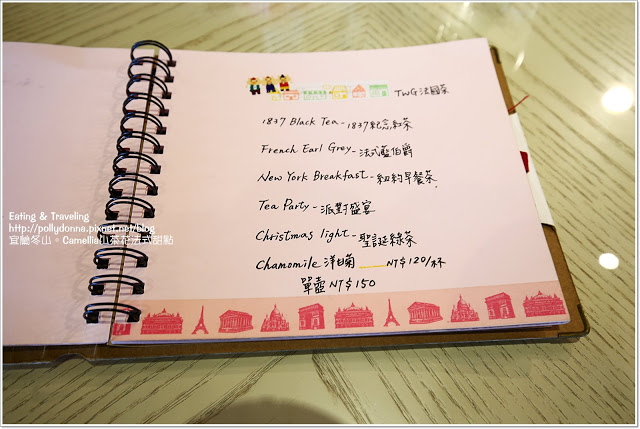 TWG法國茶
1837 Black Tea - 1837紀念紅茶
French Earl Grey - 法式藍伯爵
New York Breakfast - 紐約早餐茶
Tea Party - 派對盛宴
Christmas light - 聖誕綠茶
Chamomile 洋甘菊 NT$120/杯
單壺 NT$150
Eating & Traveling
http://pollydonne.pixnet.net/blog
宜蘭冬山。Camellia山茶花法式甜點